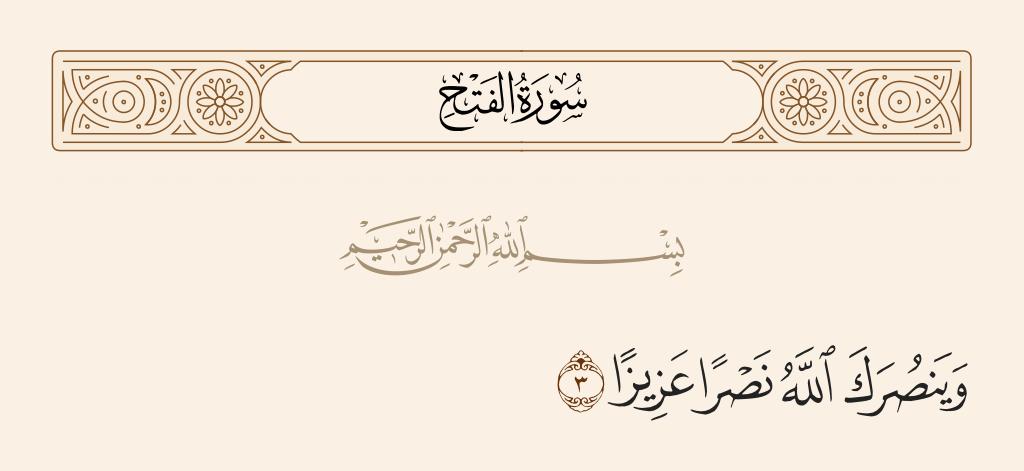 سُورَةُ الفَتۡحِ
بِسۡمِ ٱللَّهِ ٱلرَّحۡمَٰنِ ٱلرَّحِيمِ
وَيَنصُرَكَ ٱللَّهُ نَصۡرًا عَزِيزًا ٣